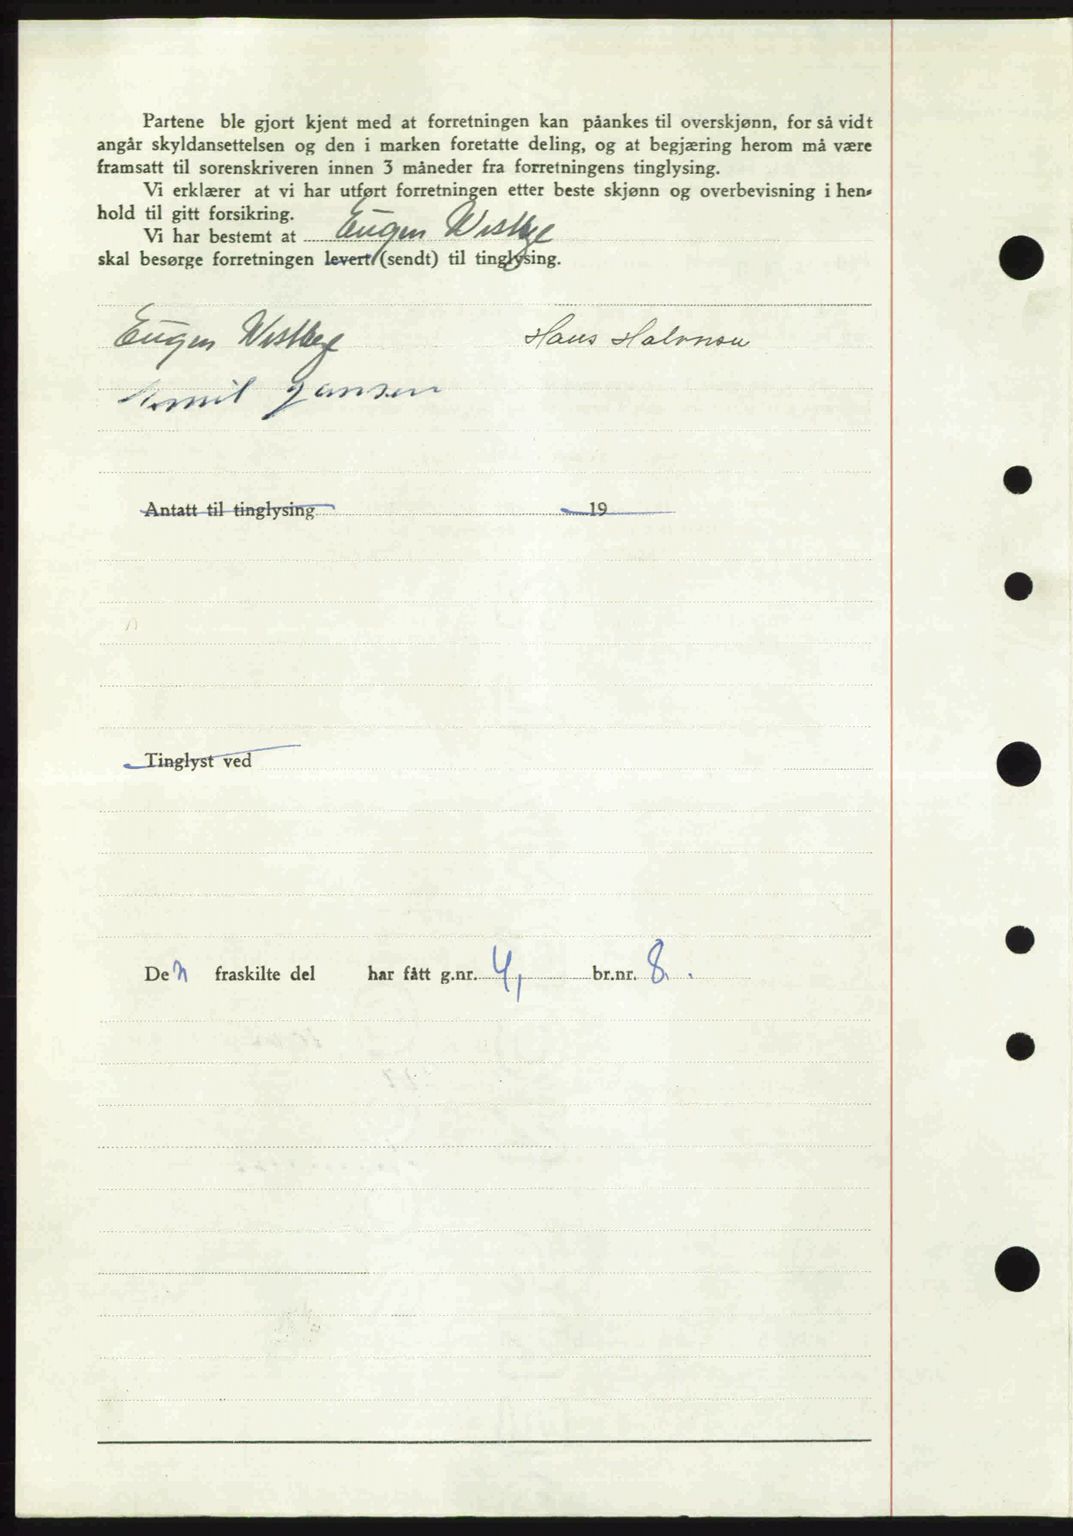 Partene ble gjort kjent med at forretningen kan påankes til overskjønn, for så vidt
angår skyldansettelsen og den i marken foretatte deling, og at begjæring herom må være
framsatt til sorenskriveren innen 3 måneder fra forretningens tinglysing.
Vi erklærer at vi har utført forretningen etter beste skjønn og overbevisning i hen-
hold til gitt forsikring.
Vi har bestemt at Eugen Westbye
skal besørge forretningen levert (sendt) til tinglysing.
Eugen Westbye Hans Halvorsen
Emil Jansen
Antatt til tinglysing 19
Tinglyst ved
Den fraskilte del har fått g.nr. 4, br.nr. 8.